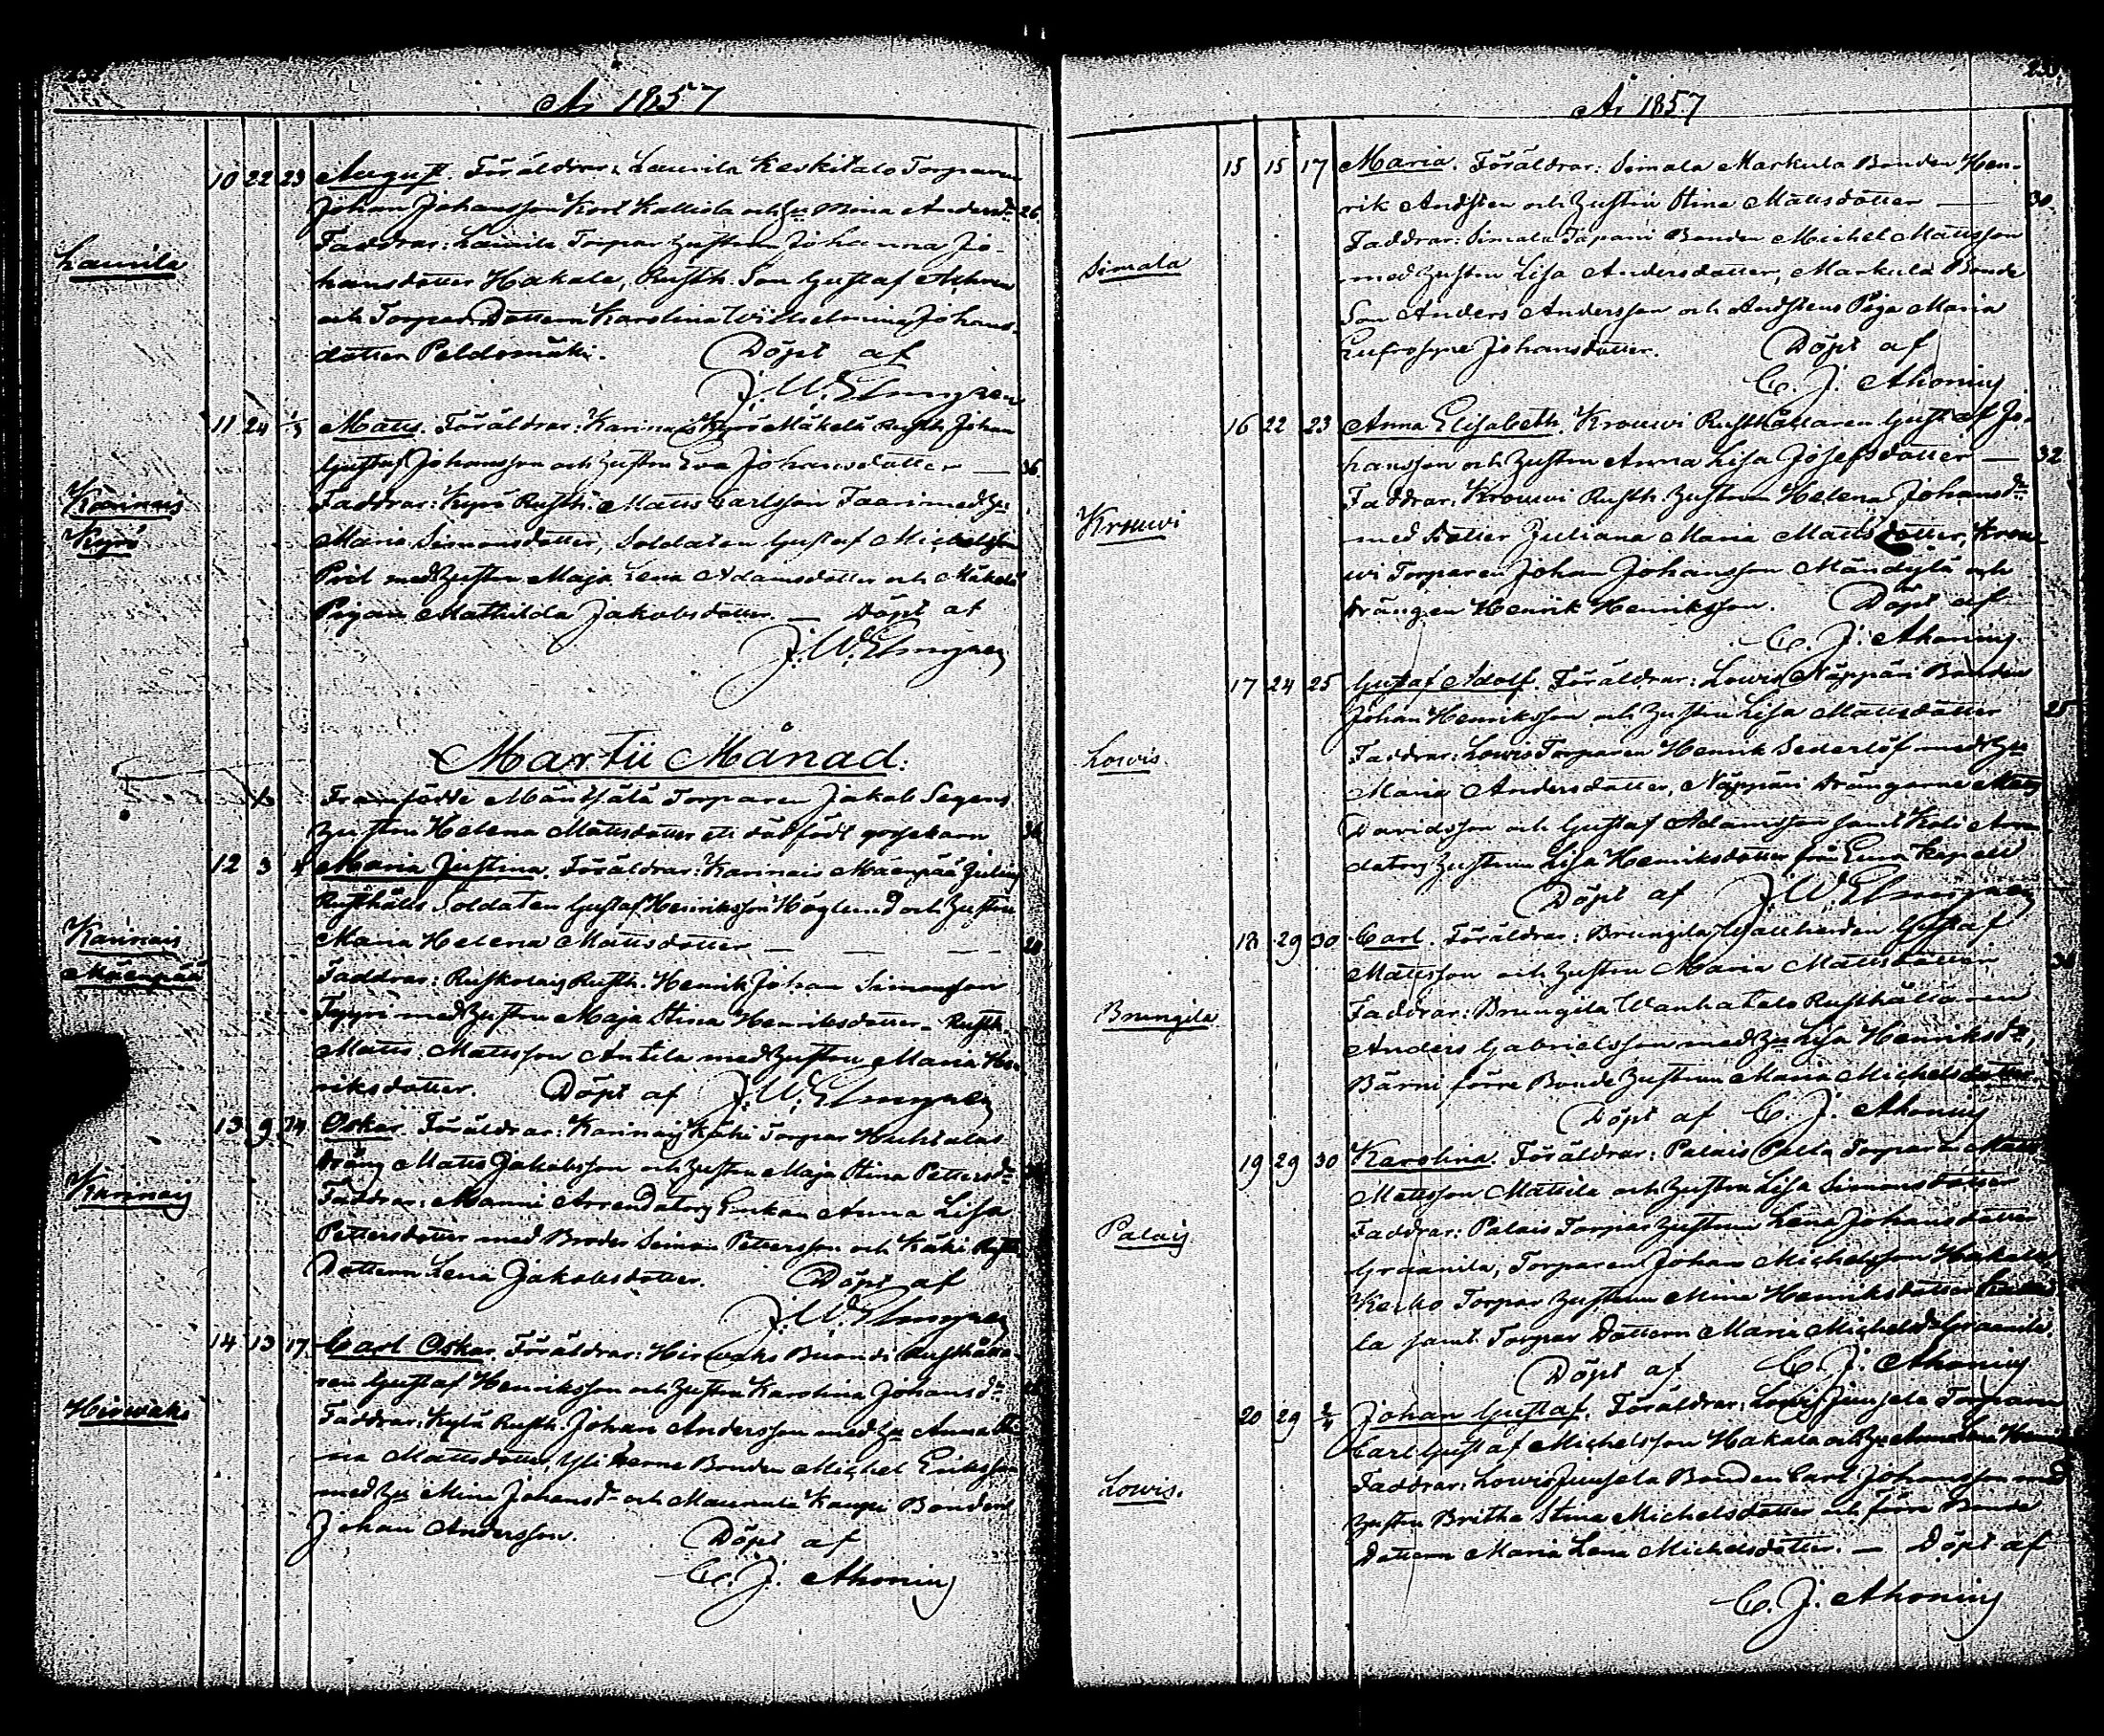 År 1857
10 22 23 August. Föräldrar: Laurila Keskitalo Torparen
Johan Johansson Kort Kalliola och Hu Mina Andersdr 26.
Laurila
Faddrar: Laurila Torpar Hustrun Johanna Jo-
hansdotter Hakala, Rusth. Son Gustaf
och Torpar Dottern Karolina Wilhelmina Johans-
dotter Peldomäki. Döpt af
J. W. Elmgren
11 24 1/3 Matts. Föräldrar: Karinais Kyrö Mäkelä Rusth. Johan
Gustaf Johansson och Hustru Eva Johansdotter — 36
Karinais
Kyrö
Faddrar: Kyrö Rusth. Matts Carlsson Taari med Hu
Maria Simonsdotter, Soldaten Gustaf Michelsson
Pril med Hustru Maja Lena Adamsdotter och Mäkelä
Pigan Mathilda Jakobsdotter — Döpt af
J. W. Elmgren
Martii Månad.
Framfödde Mäntsälä Torparen Jakob Segers
Hustru Helena Mattsdotter ett dödfödt gossebarn
12 3 Maria Justina. Föräldrar: Karinais Mäenpää Julius
Rusthålls Soldaten Gustaf Henriksson Höglund och Hustru
Karinais
Mäenpää
Maria Helena Mattsdotter —
Faddrar: Rusth. Henrik Johan Simonsson
Tyyri med Hustru Maja Stina Henriksdotter, Rusth.
Matts Mattsson Antila med Hustru Maria Hen-
riksdotter. Döpt af J. W. Elmgren
13 9 14 Oskar. Föräldrar: Karinais Käki Torpar Huhtalas
dräng Matts Jakobsson och Hustru Maja Stina Pettersdr
Karinais
Faddrar: Manni Arrendators Enkan Anna Lisa
Pettersdotter med Broder Simon Pettersson och Käki Rusth.
Dottern Lena Jakobsdotter. Döpt af
J. W. Elmgren
14 13 17 Carl Oskar. Föräldrar: Hirwaks Rusthålla-
ren Gustaf Henriksson och Hustru Karolina Johansdr
Hirwaks
Faddrar: Kylä Rusth. Johan Andersson med Hu Anna Sti-
na Mattsdotter, Yli Kerno Bonden Michel Eriksson
med Hu Mina Johansdr och Maurula Kaupi Bonden
Johan Andersson. Döpt af
C. J. Ahonius
År 1857
15 15 17 Maria. Föräldrar: Simala Markula Bonden Hen-
rik Andsten och Hustru Stina Mattsdotter — 30.
Simala
Faddrar: Simala Tapani Bonden Michel Mattsson
med Hustru Lisa Andersdotter, Markula Bonde
Son Anders Andersson och Andstens Piga Maria
Eufrosyne Johansdotter. Döpt af
C. J. Ahonius
16 22 23 Anna Elisabeth. Krouwi Rusthållaren Gustaf Jo-
hansson och Hustru Anna Lisa Josefsdotter — 32
Krouwi
Faddrar: Krouwi Rusth. Hustrun Helena Johansdr
med dotter Juliana Maria Mattsdotter, Krou-
wi Torparen Johan Johansson Mändylä och
drängen Henrik Henriksson. Döpt af
C. J. Ahonius
17 24 25 Gustaf Adolf. Föräldrar: Lowis Näppäri Bonden
Johan Henriksson och Hustru Lisa Mattsdotter 25
Lowis.
Faddrar: Lowis Torparen Henrik Sederlöf med Hu
Maria Andersdotter, Näppäri drängarne Matts
Davidsson och Gustaf Adamsson samt Arren
dators Hustrun Lisa Henriksdotter från Eura Kapell
Döpt af J. W. Elmgren
18 29 30 Carl. Föräldrar: Brungila Gustaf
Mattsson och Hustru Maria Mattsdotter
Brungila
Faddrar: Brungila Wanhatalo Rusthållaren
Anders Gabrielsson med Hu Lisa Henriksdr,
Bärni förre Bonde Hustrun Maria Michelsdotter
Döpt af C. J. Ahonius
19 29 30 Karolina. Föräldrar: Palais Torparen Matts
Mattsson Mattila och Hustru Lisa Simonsdotter
Palais
Faddrar: Palais Torpar Hustrun Lena Johansdotter
Graanila, Torparen Johan Michelsson Hakala,
Torpar Hustrun Mina Henriksdotter
la samt Torpar Dottern Maria Michelsdr Graanila.
Döpt af C. J. Ahonius
20 29 2/4 Johan Gustaf. Föräldrar: Lowis Juusela Torparen
Carl Gustaf Michelsson Hakala och Hu
Lowis.
Faddrar: Lowis Juusela Bonden Carl Johansson med
Hustru Britha Stina Michelsdotter och förre Bonde
Dottern Maria Lena Michelsdotter. — Döpt af
C. J. Ahonius